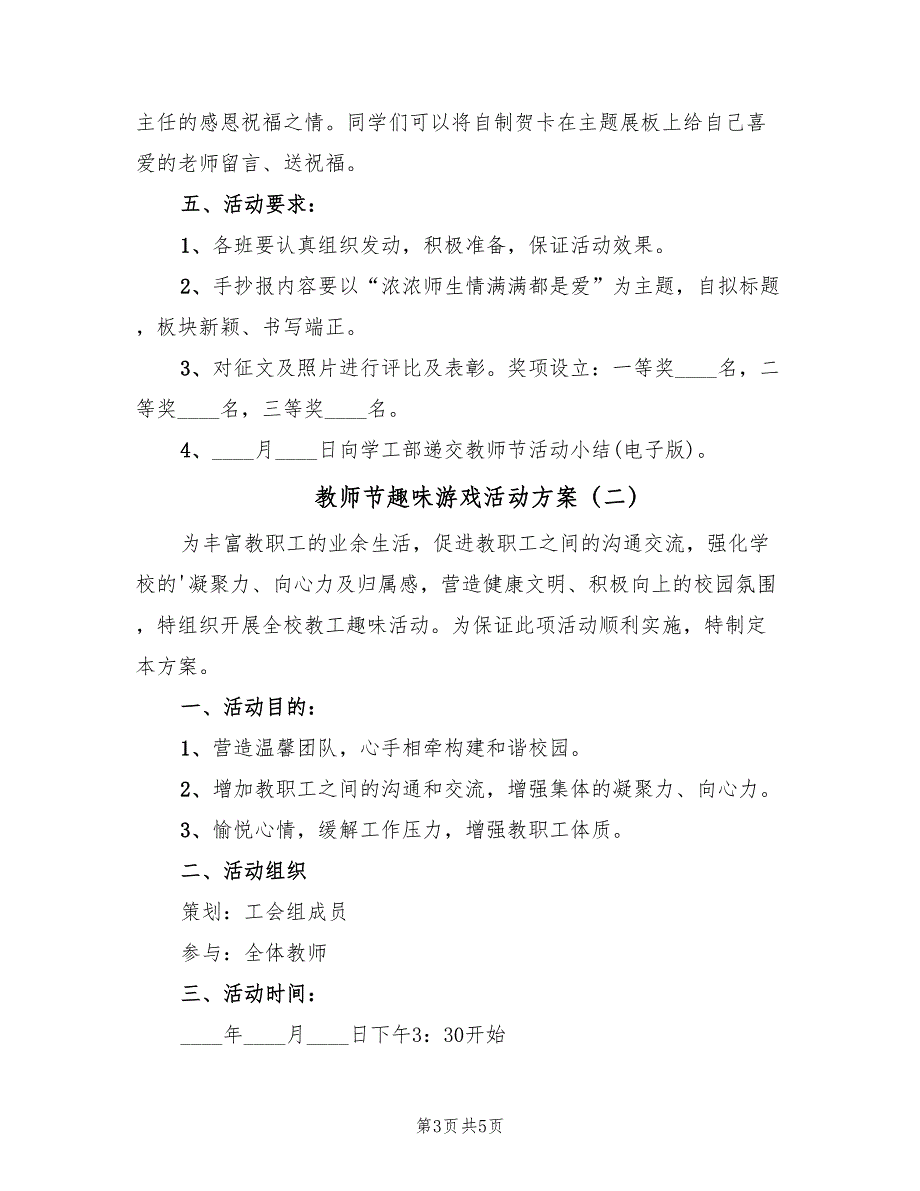 主任的感恩祝福之情。同学们可以将自制贺卡在主题展板上给自己喜
爱的老师留言、送祝福。
五、活动要求：
1、各班要认真组织发动，积极准备，保证活动效果。
2、手抄报内容要以“浓浓师生情满满都是爱”为主题，自拟标题
，板块新颖、书写端正。
3、对征文及照片进行评比及表彰。奖项设立：一等奖____名，二
等奖____名，三等奖____名。
4、____月____日向学工部递交教师节活动小结(电子版)。
教师节趣味游戏活动方案（二）
为丰富教职工的业余生活，促进教职工之间的沟通交流，强化学
校的'凝聚力、向心力及归属感，营造健康文明、积极向上的校园氛围
，特组织开展全校教工趣味活动。为保证此项活动顺利实施，特制定
本方案。
一、活动目的：
1、营造温馨团队，心手相牵构建和谐校园。
2、增加教职工之间的沟通和交流，增强集体的凝聚力、向心力。
3、愉悦心情，缓解工作压力，增强教职工体质。
二、活动组织
策划：工会组成员
参与：全体教师
三、活动时间：
____年____月____日下午3：30开始
第3页共5页